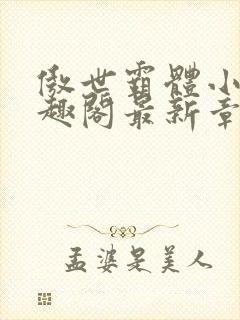 傲世霸體小
趣閣最新章
孟婆是美人